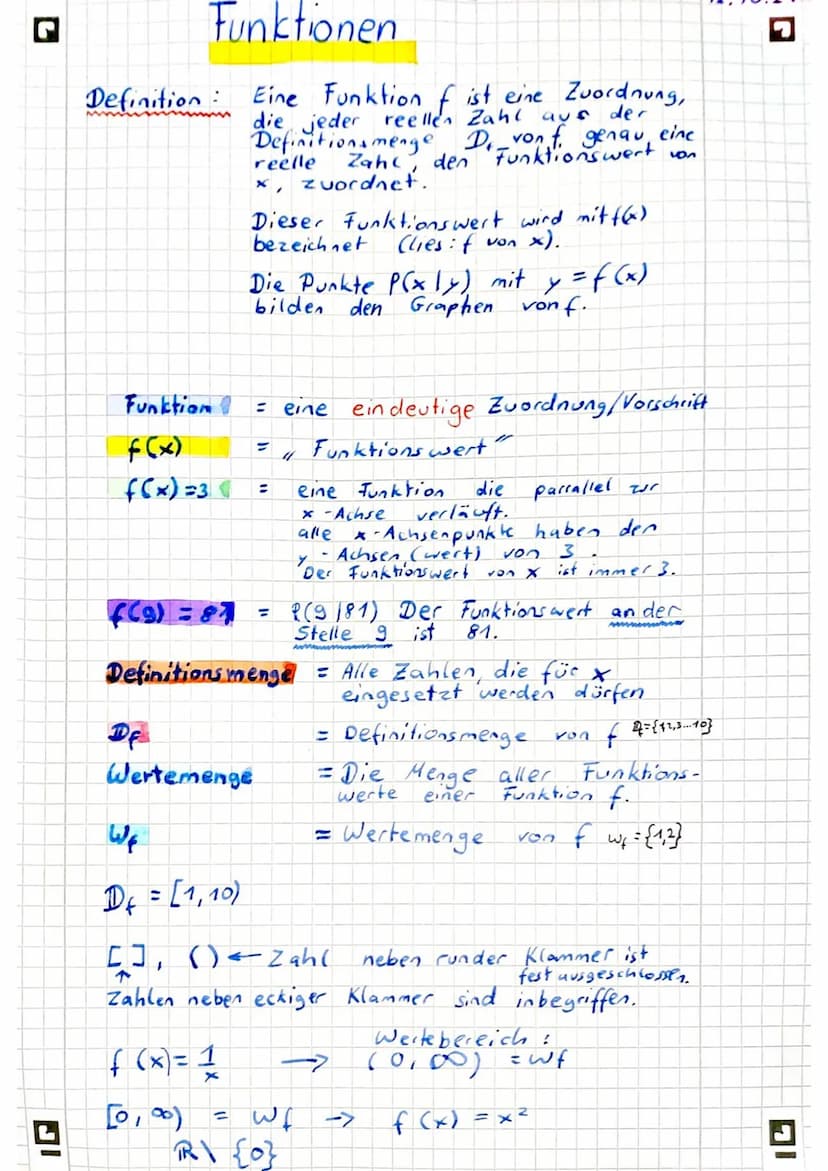 Funktionen
Definition: Eine Funktion f ist eine Zuordnung,
die jeder reellen Zahl aus der
Definitionsmenge D_f von f genau eine
reelle Zahl, den Funktionswert von
x, zuordnet.
Dieser Funktionswert wird mit f(x)
bezeichnet (lies: f von x).
Die Punkte P(x|y) mit y = f(x)
bilden den Graphen von f.
Funktion = eine eindeutige Zuordnung/Vorschrift
f(x) = „Funktionswert"
f(x)=3 = eine Funktion die parrallel zur
x-Achse verläuft.
alle x-Achsenpunkte haben den
y-Achsen(wert) von 3.
Der Funktionswert von x ist immer 3.
f(9) = 81 = P(9|81) Der Funktionswert an der
Stelle 9 ist 81.
Definitionsmenge = Alle Zahlen, die für x
eingesetzt werden dürfen
D_f = Definitionsmenge von f D={1,2,3...10}
Wertemenge = Die Menge aller Funktions-
werte einer Funktion f.
W_f = Wertemenge von f W_f={1,2}
D_f = [1,10)
[], () ← Zahl neben runder Klammer ist
fest ausgeschlossen.
↑
Zahlen neben eckiger Klammer sind inbegriffen.
Wertebereich:
f(x) = 1/x → (0,∞) = Wf
[0,∞) = Wf → f(x) = x²
ℝ\{0}